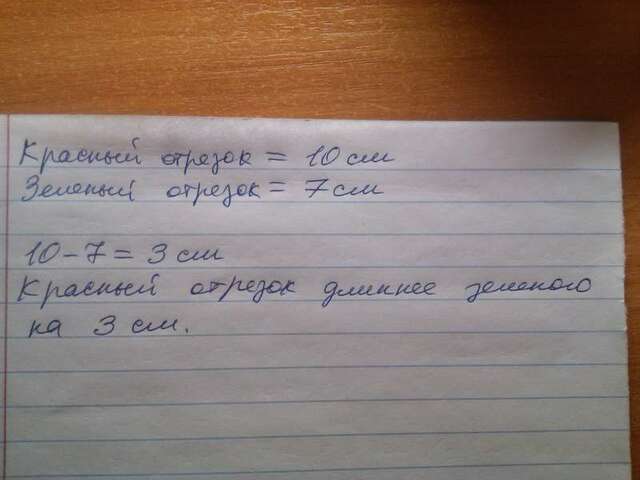 Красный отрезок = 10 см
Зеленый отрезок = 7 см
10-7 = 3 см
Красный отрезок длиннее зеленого
на 3 см.